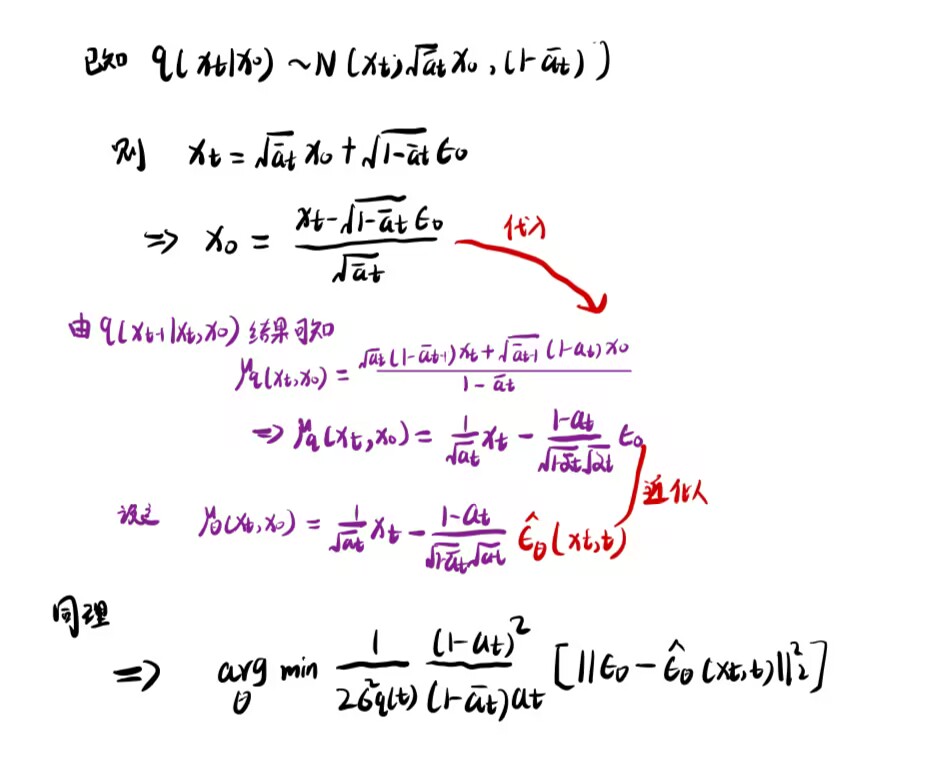 已知 q(xt|x0) ~ N(xt; √āt x0, (1-āt))
则 xt = √āt x0 + √(1-āt) ε0
⇒ x0 = (xt - √(1-āt) ε0) / √āt
代入
由 q(xt-1|xt, x0) 结果可知
μq(xt, x0) = (√at (1-āt-1) xt + √āt-1 (1-at) x0) / (1-āt)
⇒ μq(xt, x0) = (1/√at) xt - ((1-at) / (√(1-āt) √at)) ε0
近似
设定 μθ(xt, x0) = (1/√at) xt - ((1-at) / (√(1-āt) √at)) ε̂θ(xt, t)
同理
⇒ arg min θ (1 / 2σ²q(t)) ((1-at)² / ((1-āt) at)) [||ε0 - ε̂θ(xt, t)||²₂]